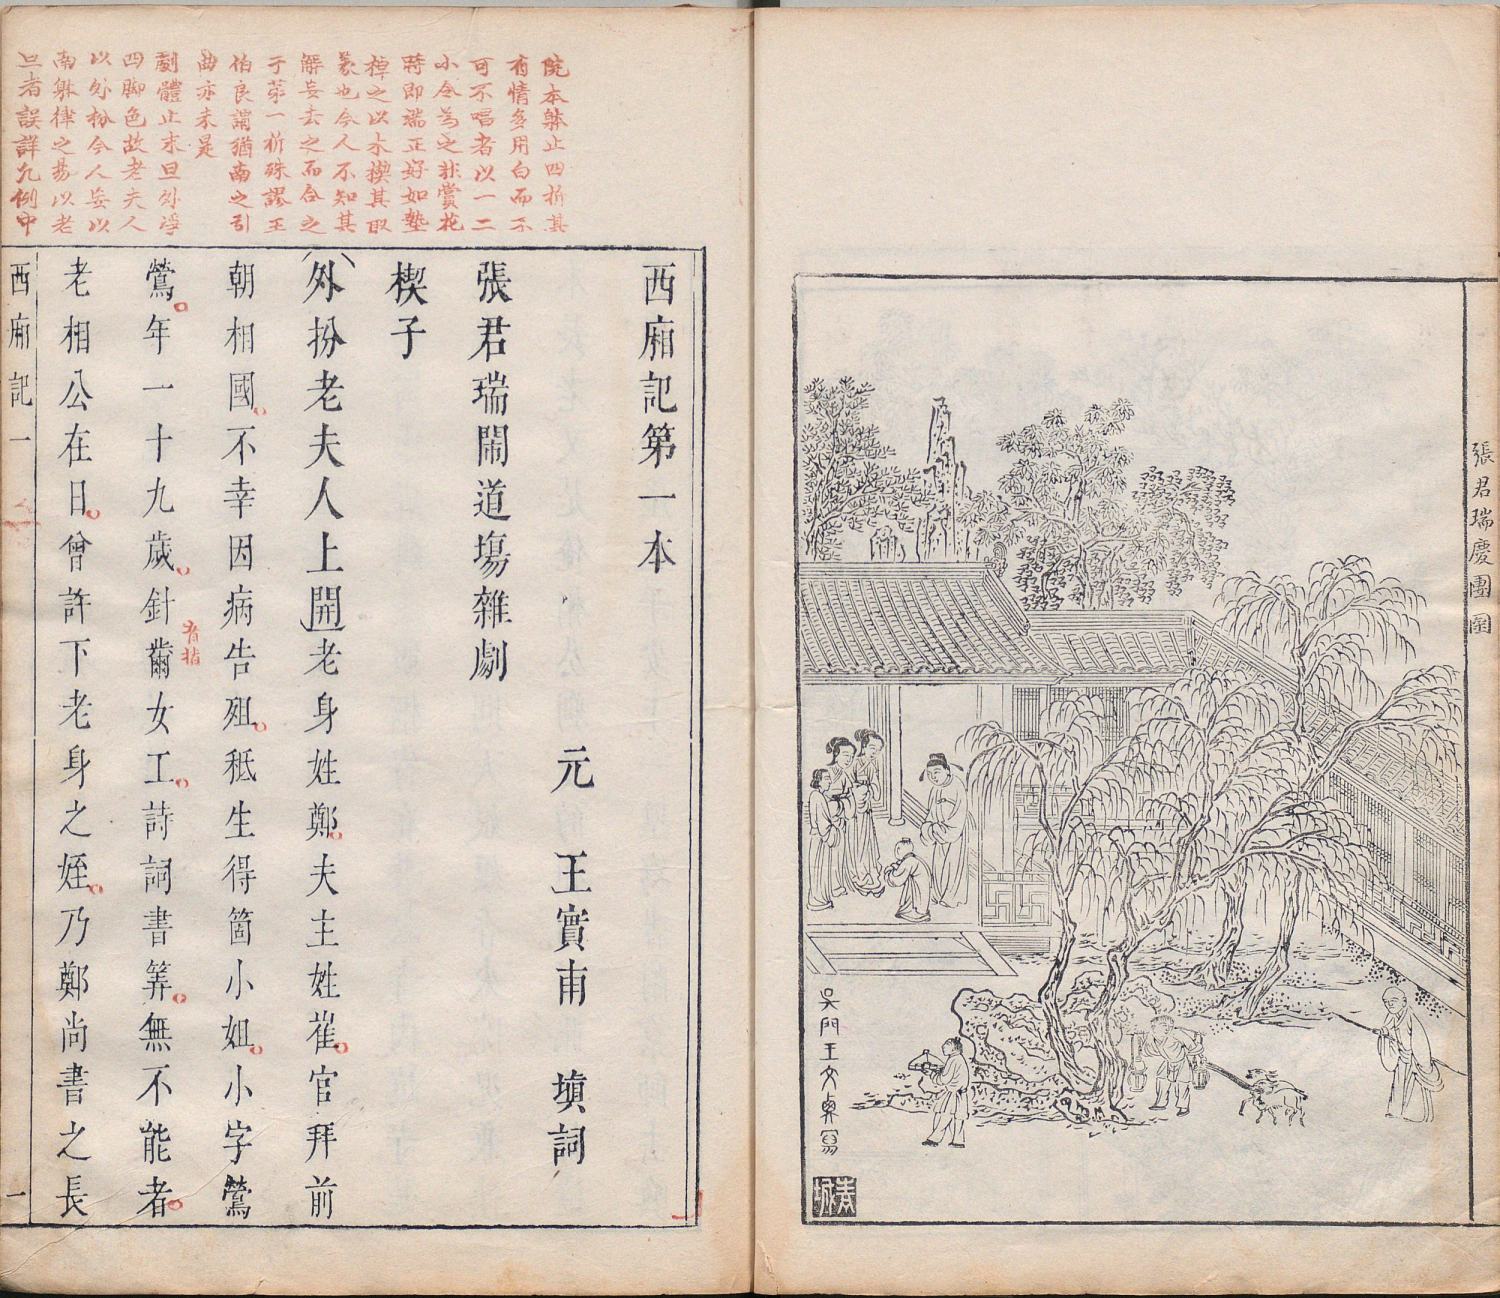 張君瑞慶團圞
吳門王文衡寫
院本躰止四折其
有情多用白而不
可不唱者以一二
小令為之非賞花
時即端正好如墊
棹之以木楔其取
義也今人不知其
解妄去之而合之
于苐一折殊謬王
伯良謂猶南之引
曲亦未是
劇體止末旦外淨
四脚色故老夫人
以外扮今人妄以
南躰律之易以老
旦者誤詳凡例中
西廂記第一本
元　王實甫　塡詞
張君瑞鬧道塲雜劇
楔子
外扮老夫人上開老身姓鄭夫主姓崔官拜前
朝相國不幸因病告殂秪生得箇小姐小字鶯
鶯年一十九歲針黹女工詩詞書筭無不能者
老相公在日曾許下老身之姪乃鄭尚書之長
有指
西廂記一
一